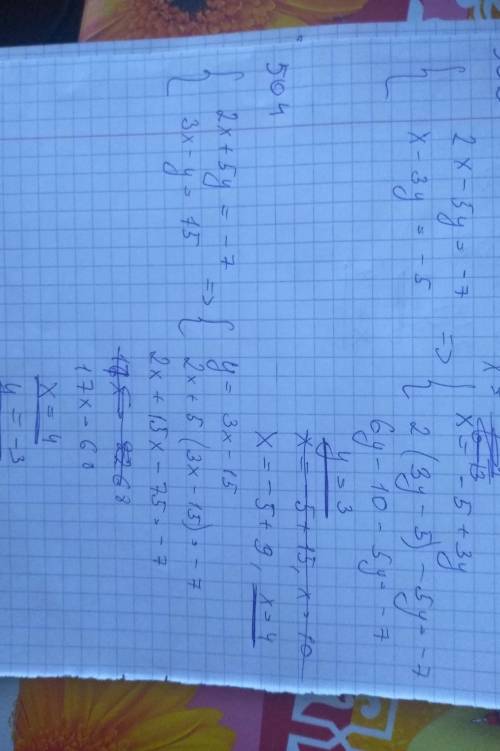 { 2x - 5y = -7
x - 3y = -5 => { x = -5 + 3y
2(3y - 5) - 5y = -7
6y - 10 - 5y = -7
y = 3
x = -5 + 15, x = 10
x = -5 + 9, x = 4
504
{ 2x + 5y = -7
3x - y = 15 => { y = 3x - 15
2x + 5(3x - 15) = -7
2x + 15x - 75 = -7
17x = 68
x = 4
y = -3